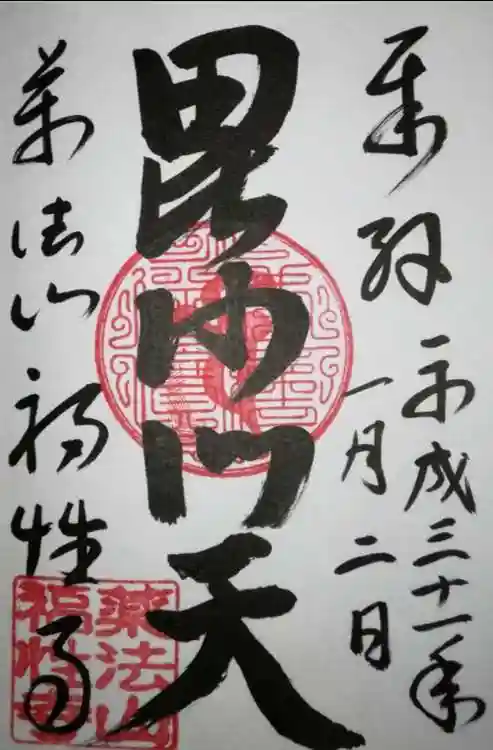 奉拝
平成三十一年
一月二日
毘沙門天
薬法山福性寺
薬法山
福性寺